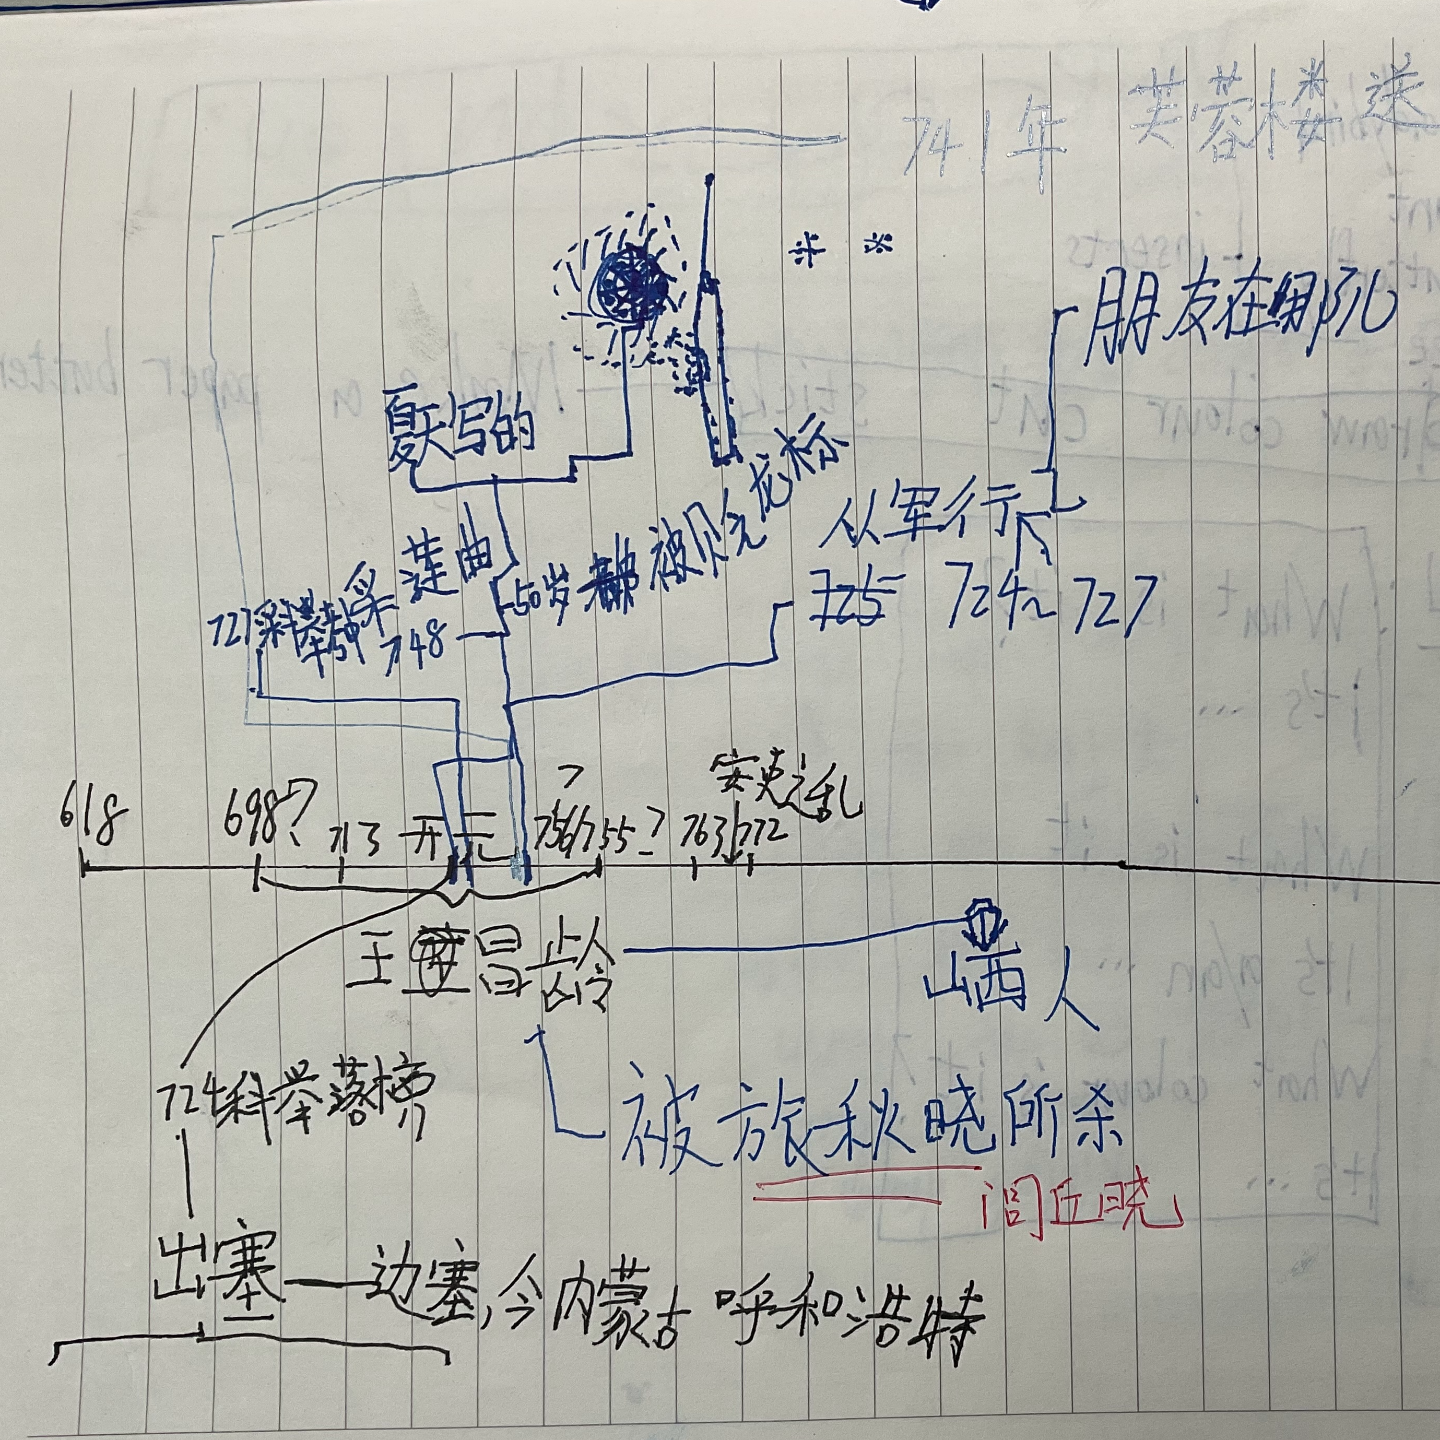 741年 芙蓉楼送
朋友在哪儿
夏天写的
从军行
725 724~727
采莲曲
748
50岁 被贬龙标
727科举
618 698? 713 开元 756/755? 763 772
?
安史之乱
王昌龄
山西人
724科举落榜
被旅秋晓所杀
闾丘晓
出塞——边塞,今内蒙古 呼和浩特